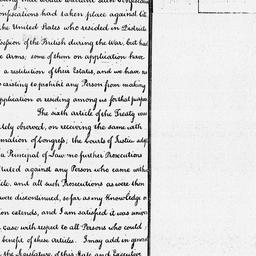 onfiscations had taken place against Cit
the United States who resided in Districts
session of the British during the War, but had
e Arms; some of them on application have
a restitution of their Estates, and we have no
existing to prohibit any Person from making
application or residing among us for that purpose
The sixth article of the Treaty was
tely observed, on receiving the same with
mation of Congress; the Courts of Justice adop
a Principal of Law no further Prosecutions
tuted against any Person who came with
cle, and all such Prosecutions as were then
were discontinued, so far as my Knowledge o
ion extends, and I am satisfied it was
case with respect to all Persons who could
benefit of these articles. I may add in general
the Legislature of this State and Executive